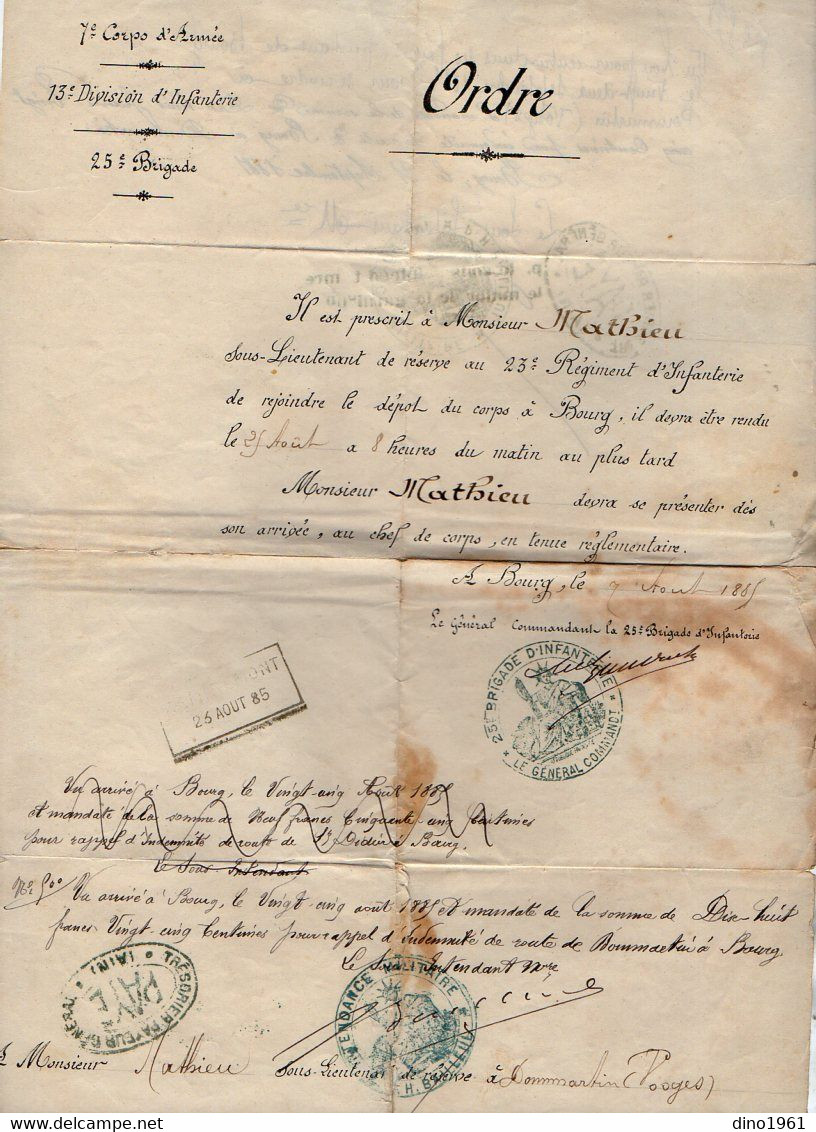 7e Corps d'Armée
13e Division d'Infanterie
25e Brigade
Ordre
Il est prescrit à Monsieur Mathieu
Sous-Lieutenant de réserve au 23e Régiment d'Infanterie
de rejoindre le dépot du corps à Bourg, il devra être rendu
le 25 Août a 8 heures du matin au plus tard
Monsieur Mathieu devra se présenter dès
son arrivée, au chef de corps, en tenue réglementaire.
A Bourg, le 7 Aout 1885
Le Général Commandant la 25e Brigade d'Infanterie
25E BRIGADE D'INFANTERIE * LE GÉNÉRAL COMMANDT *
MONT
23 AOUT 85
Vu arrivé à Bourg, le Vingt-cinq Août 1885
et mandaté de la somme de Neuf francs Cinquante cinq Centimes
pour rappel d'Indemnité de route de St Didier à Bourg.
Le Sous Intendant
No 500 Vu arrivé à Bourg, le Vingt-cinq août 1885 et mandaté de la somme de Dix-huit
francs Vingt-cinq Centimes pour rappel d'Indemnité de route de Dommartin à Bourg
Le Sous Intendant Mre
TRÉSORIER PAYEUR GÉNÉRAL * (AIN) *
PAYÉ
INTENDANCE MILITAIRE
A Monsieur Mathieu Sous-Lieutenant de réserve à Dommartin (Vosges)
dino1961